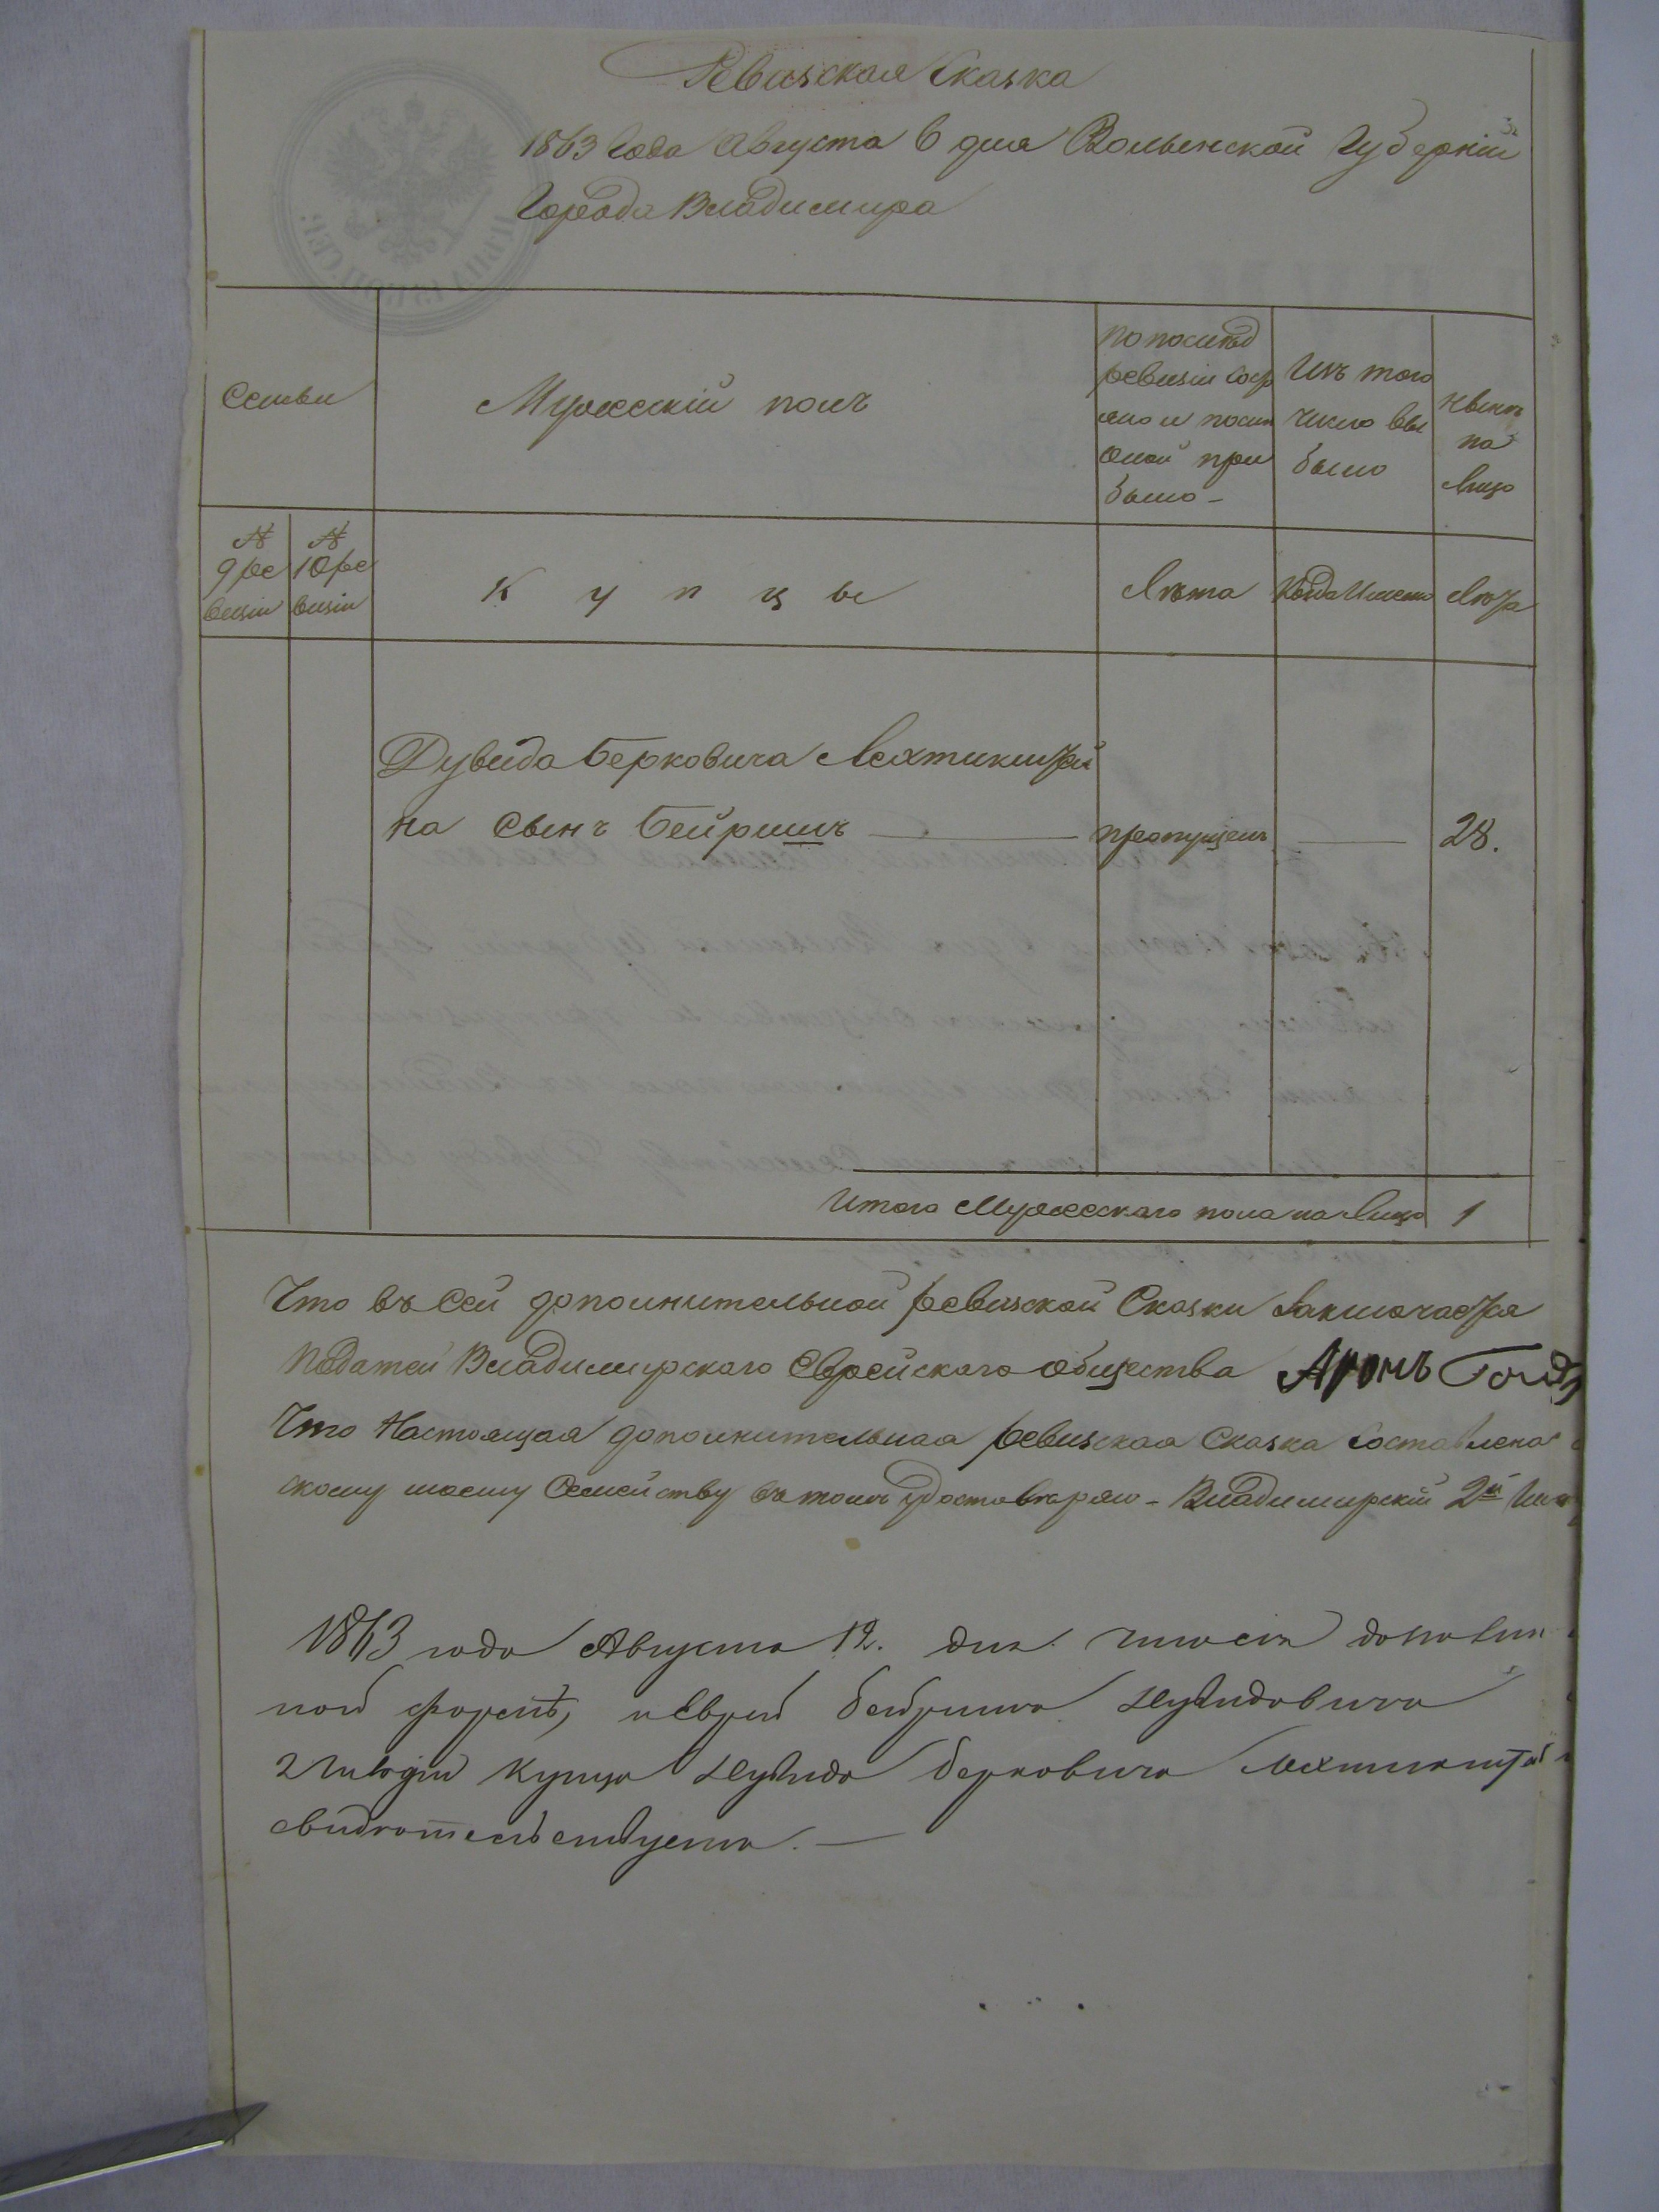 Ревизская Сказка
1863 Года Августа 6 дня Волынской Губерніи
Города Владимира
Семьи
Мужескій полъ
По послѣд
ревизіи сос
оной при
было -
Изъ того
число вы
было
Нынѣ
на
лицо
№
9 ре
визіи
№
10 ре
визіи
К у п ц ы
Лѣта
Лѣта
Дувида Берковича Лехтикштей
на Сынъ Бейришъ
пропущенъ
28.
Итого Мужескаго пола на лицо 1
Что въ сей дополнительной ревизской Сказки Заключается
Податей Владимирского Еврейского общества Аронъ
Что Настоящая дополнительная ревизская Сказка составлена
скому моему Семейству въ томъ удостовѣряю - Владимирскій 2й
1863 года Августа 12. дня
ной формѣ, Бейриша Дувидовича
2 гильдіи купца Дувида Берковича
свидѣтельствуетъ. —